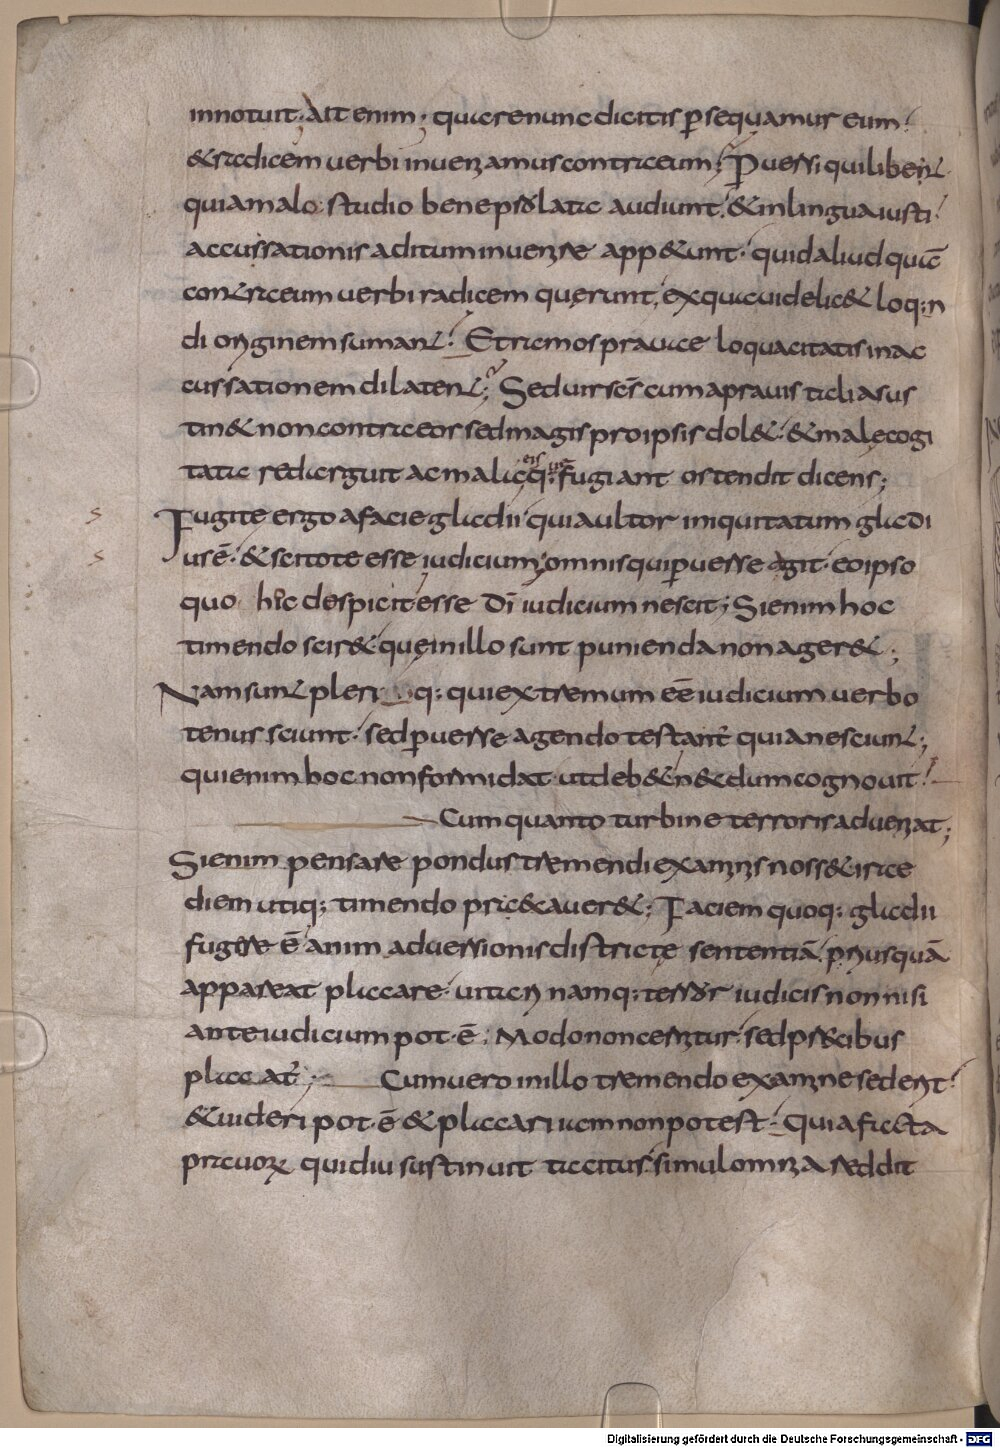 innotuit. Ait enim; quare nunc dicitis p̱sequamur eum.
& radicem uerbi inueniamus contra eum; P̱uersi qui libent̄
quia malo studio bene p̱lata audiunt. & in lingua iusti
accussationis aditum inuenire app&unt. quid aliud quā
contra eum uerbi radicem quęrunt, ex qua uidelic& loq;n
di originem sumant. Et ramos prauae loquacitatis in ac
cussatione dilatent; Sed uir scs̄ cum a prauis talia sus
tin& non contra eos sed magis pro ipsis dol&. & male cogi
tata redarguit ac mala eis q; quę fugiant ostendit dicens;
Fugite ergo a facie gladii quia ultor iniquitatum gladi
us ē. & scitote esse iudicium; omnis qui p̱uerse agit. eo ipso
quo hęc despicit esse dī iudicium nescit; Si enim hoc
timendo scir& quę in illo sunt punienda non ager&;
Nam sunt pleri q; qui extremum eē iudicium uerbo
tenus sciunt. sed p̱uerse agendo testant̄ quia nesciunt;
qui enim hoc non formidat ut deb& n& dum cognouit
Cum quanto turbine terroris adueniat;
Si enim pensare pondus tremendi examinis noss& irae
diem utiq; timendo praecauer&; Faciem quoq; gladii
fugere ē animaduersionis districtę sententiā, priusquā
appareat placare. uitari namq; terror iudicis non nisi
ante iudicium pot ē; Modo non cernitur. sed precibus
placat̄; Cum uero in illo tremendo examine sederit
& uideri pot ē & placari iam non potest. Quia facta
prauorꝝ qui diu sustinuit tacitus. simul omnia reddit
s
s
Digitalisierung gefördert durch die Deutsche Forschungsgemeinschaft - DFG